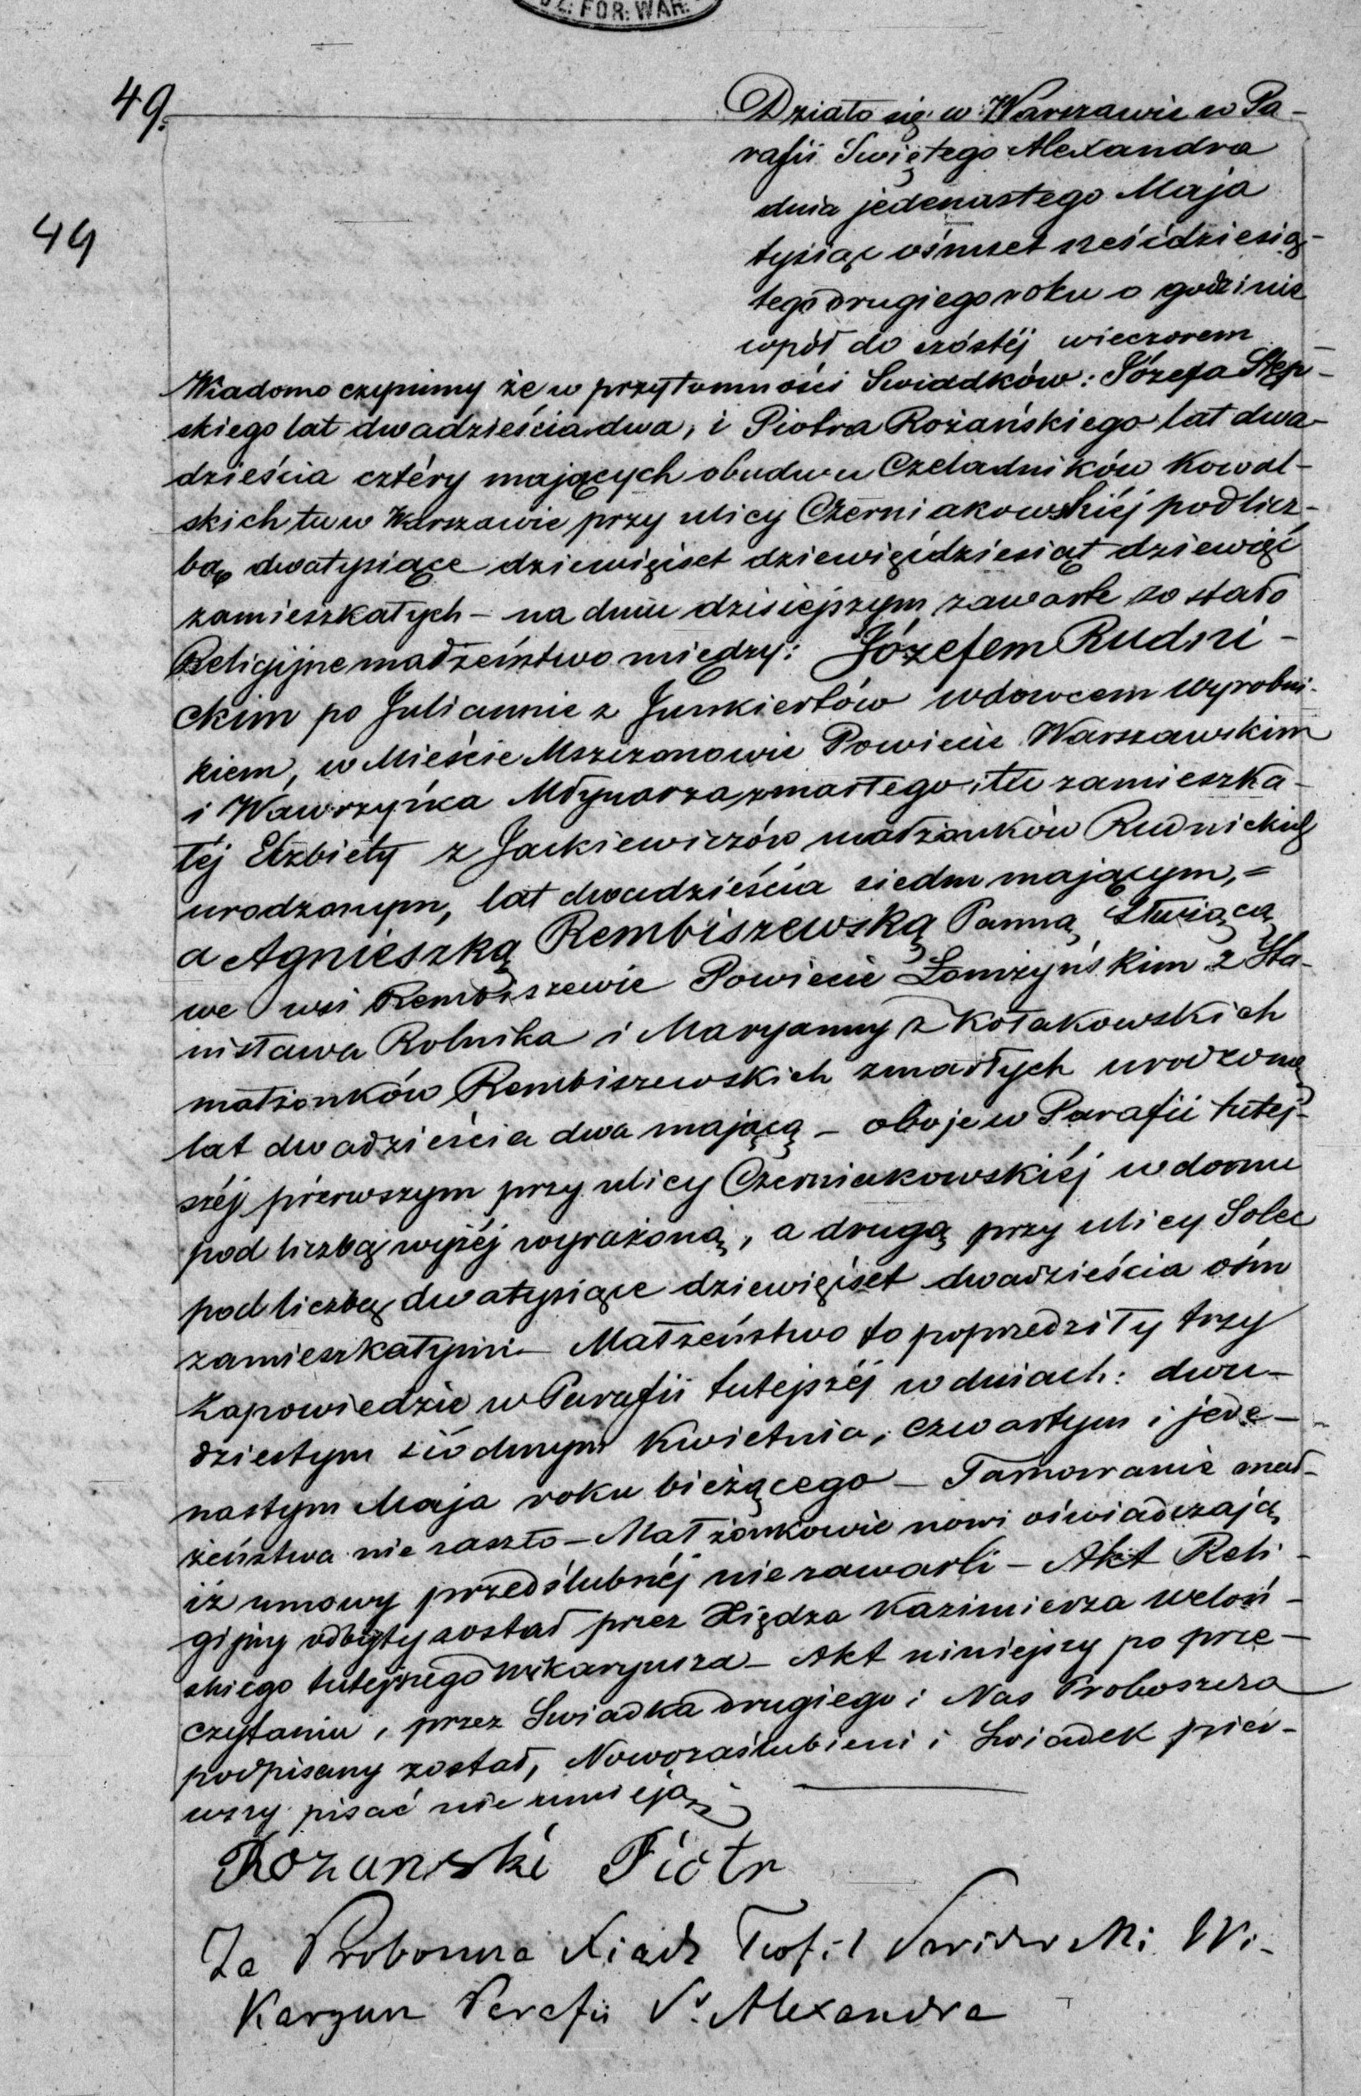 DZ: FOR: WAR:
49.
49
Działo się w Warszawie w Pa-
rafii Świętego Alexandra
dnia jedenastego Maja
tysiąc ośmset sześćdziesią-
tego drugiego roku o godzinie
wpół do szóstéj wieczorem
Wiadomo czynimy że w przytomności Swiadków: Józefa Stęp-
skiego lat dwadzieścia dwa, i Piotra Rożańskiego lat dwa-
dzieścia cztéry mających obudwu Czeladników Kowal-
skich tu w Warszawie przy ulicy Czerniakowskiéj pod licz-
bą dwatysiące dziewięćset dziewięćdziesiąt dziewięć
zamieszkałych – na dniu dzisiejszym zawarte zostało
Religijne małżeństwo między: Józefem Rudni-
ckim po Juliannie z Junkiertów wdowcem Wyrobni-
kiem, w Mieście Mszczonowie Powiecie Warszawskim
i Wawrzyńca Młynarza zmarłego i tu zamieszka-
łéj Elżbiety z Jackiewiczów małżonków Rudnickich
urodzonym, lat dwadzieścia siedm mającym, =
a Agnieszką Rembiszewską Panną Służącą
we wsi Rembiszewie Powiecie Łomżyńskim z Sta-
nisława Rolnika i Maryanny z Kołakowskich
małżonków Rembiszewskich zmarłych urodzoną
lat dwadzieścia dwa mającą – oboje w Parafii tutej-
széj pierwszym przy ulicy Czerniakowskiéj w domu
pod liczbą wyżéj wyrażoną, a drugą przy ulicy Solec
pod liczbą dwatysiące dziewięćset dwadzieścia ośm
zamieszkałymi – Małżeństwo to poprzedziły trzy
Zapowiedzie w Parafii tutejszéj w dniach: dwu-
dziestym siódmym Kwietnia, czwartym i jede-
nastym Maja roku bieżącego – Tamowanie mał-
żeństwa nie zaszło – Małżonkowie nowi oświadczają
iż umowy przedślubnéj nie zawarli – Akt Reli-
gijny odbyty został przez Xiędza Kazimierza Weloń-
skiego tutejszego Wikaryusza – Akt niniejszy po prze-
czytaniu, przez Swiadka drugiego i Nas Proboszcza
podpisany został, Nowozaślubieni i Swiadek pier-
wszy pisać nie umieją
Rozanski Piotr
Za Proboszcza Xiądz Teofil Wi-
karyusz Parafii Sº Alexandra